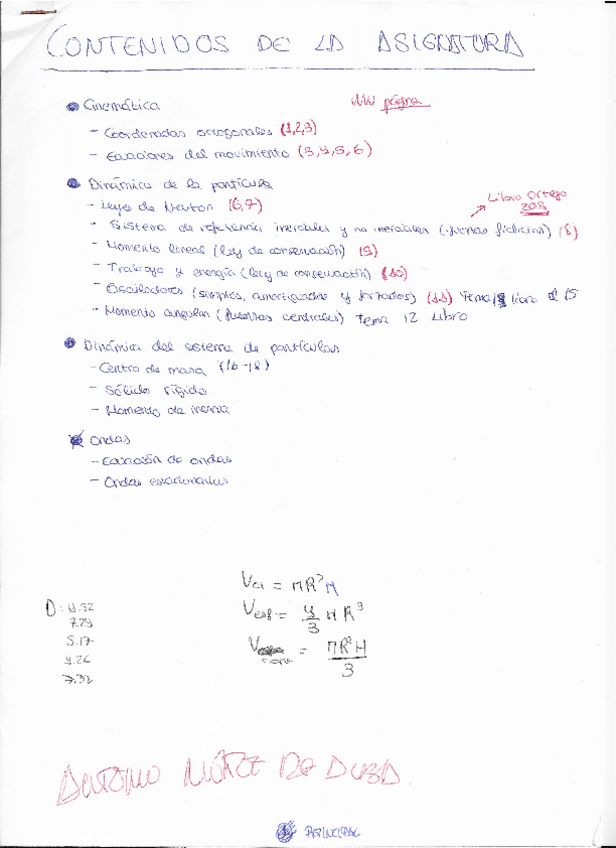 CONTENIDOS DE LA ASIGNATURA
Cinemática
página
- Coordenadas ortogonales (1,2,3)
- Ecuaciones del movimiento (3,4,5,6)
Dinámica de la partícula
Libro Ortega
203
- Leyes de Newton (6,7)
- Sistema de referencia inerciales y no inerciales (fuerzas ficticias) (8)
- Momento lineal (ley de conservación) (9)
- Trabajo y energía (ley de conservación) (10)
- Osciladores (simples, amortiguados y forzados) Tema libro
- Momento angular (fuerzas centrales) Tema 12 Libro
Dinámica del sistema de partículas
- Centro de masa (16-18)
- Sólido rígido
- Momento de inercia
Ondas
- Ecuación de ondas
- Ondas estacionarias
V = πR²H
D: 4.32
7.29
V = 4/3 π R³
5.17
4.26
V = πR²H/3
7.32
ANTONIO
PRINCIPAL